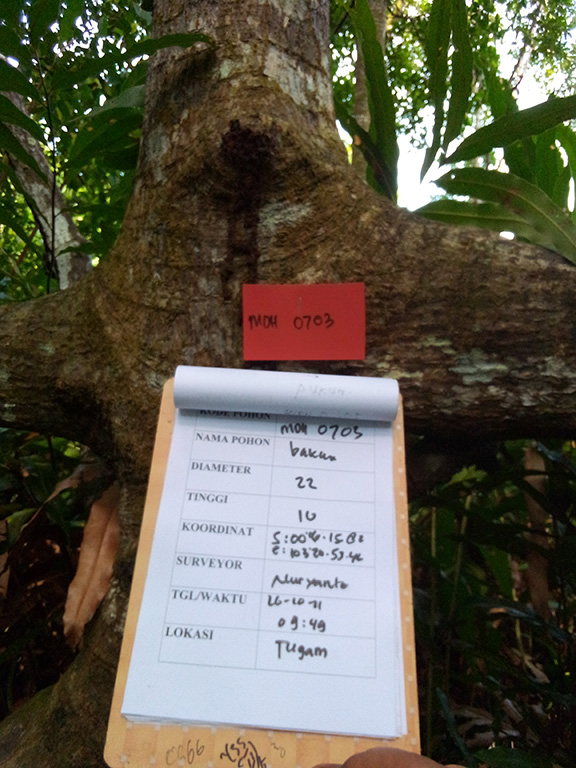 MOH 0703
KODE POHON
MOH 0703
NAMA POHON
bakau
DIAMETER
22
TINGGI
10
KOORDINAT
SURVEYOR
Nuryanto
TGL/WAKTU
26-10-21
09:49
LOKASI
Tugam